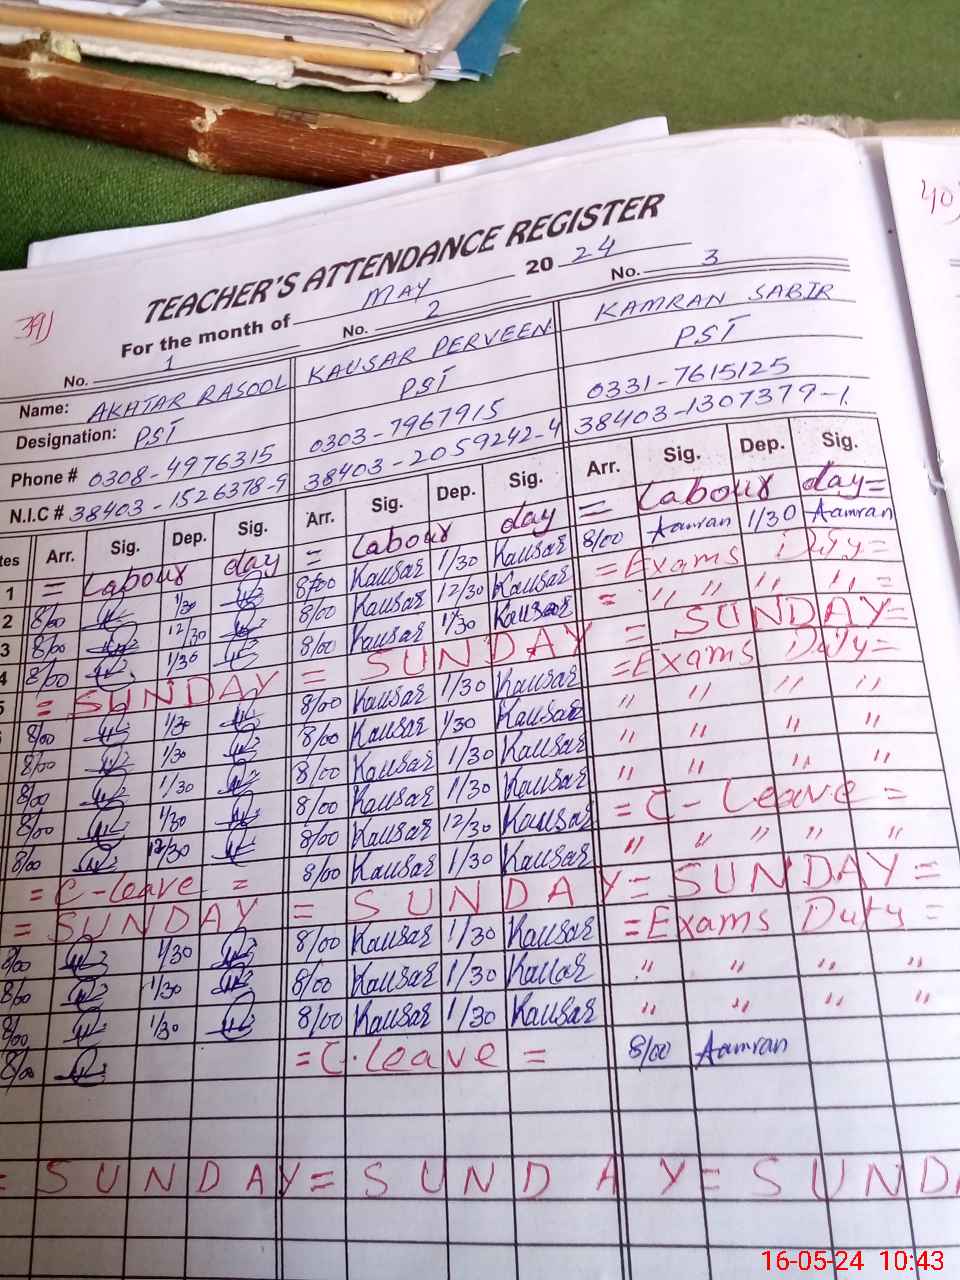 TEACHER'S ATTENDANCE REGISTER
39)
40)
For the month of MAY 20 24
No. 1 No. 2 No. 3
Name: AKHTAR RASOOL KAUSAR PERVEEN KAMRAN SABIR
Designation: PST PST PST
Phone # 0308-4976315 0303-7967915 0331-7615125
N.I.C # 38403-1526378-9 38403-2059242-4 38403-1307379-1
tes Arr. Sig. Dep. Sig. Arr. Sig. Dep. Sig. Arr. Sig. Dep. Sig.
1 = Labour day = Labour day = Labour day =
2 8/00 1/30 8/00 Kausar 1/30 Kausar 8/00 Aamran 1/30 Aamran
3 8/00 12/30 8/00 Kausar 12/30 Kausar = Exams Duty =
4 8/00 1/30 8/00 Kausar 1/30 Kausar = " " " " =
5 = SUNDAY = SUNDAY = SUNDAY =
8/00 1/30 8/00 Kausar 1/30 Kausar = Exams Duty =
8/00 1/30 8/00 Kausar 1/30 Kausar " " " "
8/00 1/30 8/00 Kausar 1/30 Kausar " " " "
8/00 1/30 8/00 Kausar 1/30 Kausar " " " "
8/00 12/30 8/00 Kausar 12/30 Kausar = C-Leave =
= C-leave = 8/00 Kausar 1/30 Kausar " " " " "
= SUNDAY = SUNDAY = SUNDAY =
8/00 1/30 8/00 Kausar 1/30 Kausar = Exams Duty =
8/00 1/30 8/00 Kausar 1/30 Kausar " " " "
8/00 1/30 8/00 Kausar 1/30 Kausar " " " "
8/00 = C.Leave = 8/00 Aamran
= SUNDAY = SUNDAY = SUNDA
16-05-24 10:43